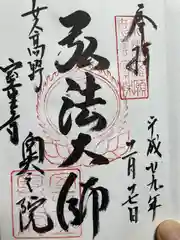 奉拝
平成廿九年
十一月十七日
弘法大師
女高野
室生寺
奥之院